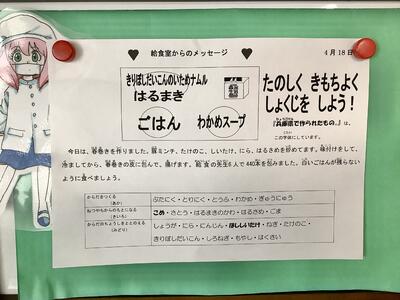 給食室からのメッセージ
4月18日
きりぼしだいこんのいためナムル
はるまき
ごはん
わかめスープ
たのしく きもちよく
しょくじを しよう！
『兵庫県で作られたもの』は、
この字体にしています。
今日は、春巻きを作りました。豚ミンチ、たけのこ、しいたけ、にら、はるさめを炒めてます。味付けをして、
冷ましてから、春巻きの皮に包んで、揚げます。給食の先生6人で440本を包みました。白いごはんが残らない
ように食べましょう。
からだをつくる
(あか)
ぶたにく・とりにく・とうふ・わかめ・ぎゅうにゅう
ねつやちからのもとになる
(きいろ)
こめ・さとう・はるまきのかわ・はるさめ・ごま
からだのちょうしをととのえる
(みどり)
しょうが・にら・にんじん・ほししいたけ・ねぎ・たけのこ・
きりぼしだいこん・しろねぎ・もやし・はくさい